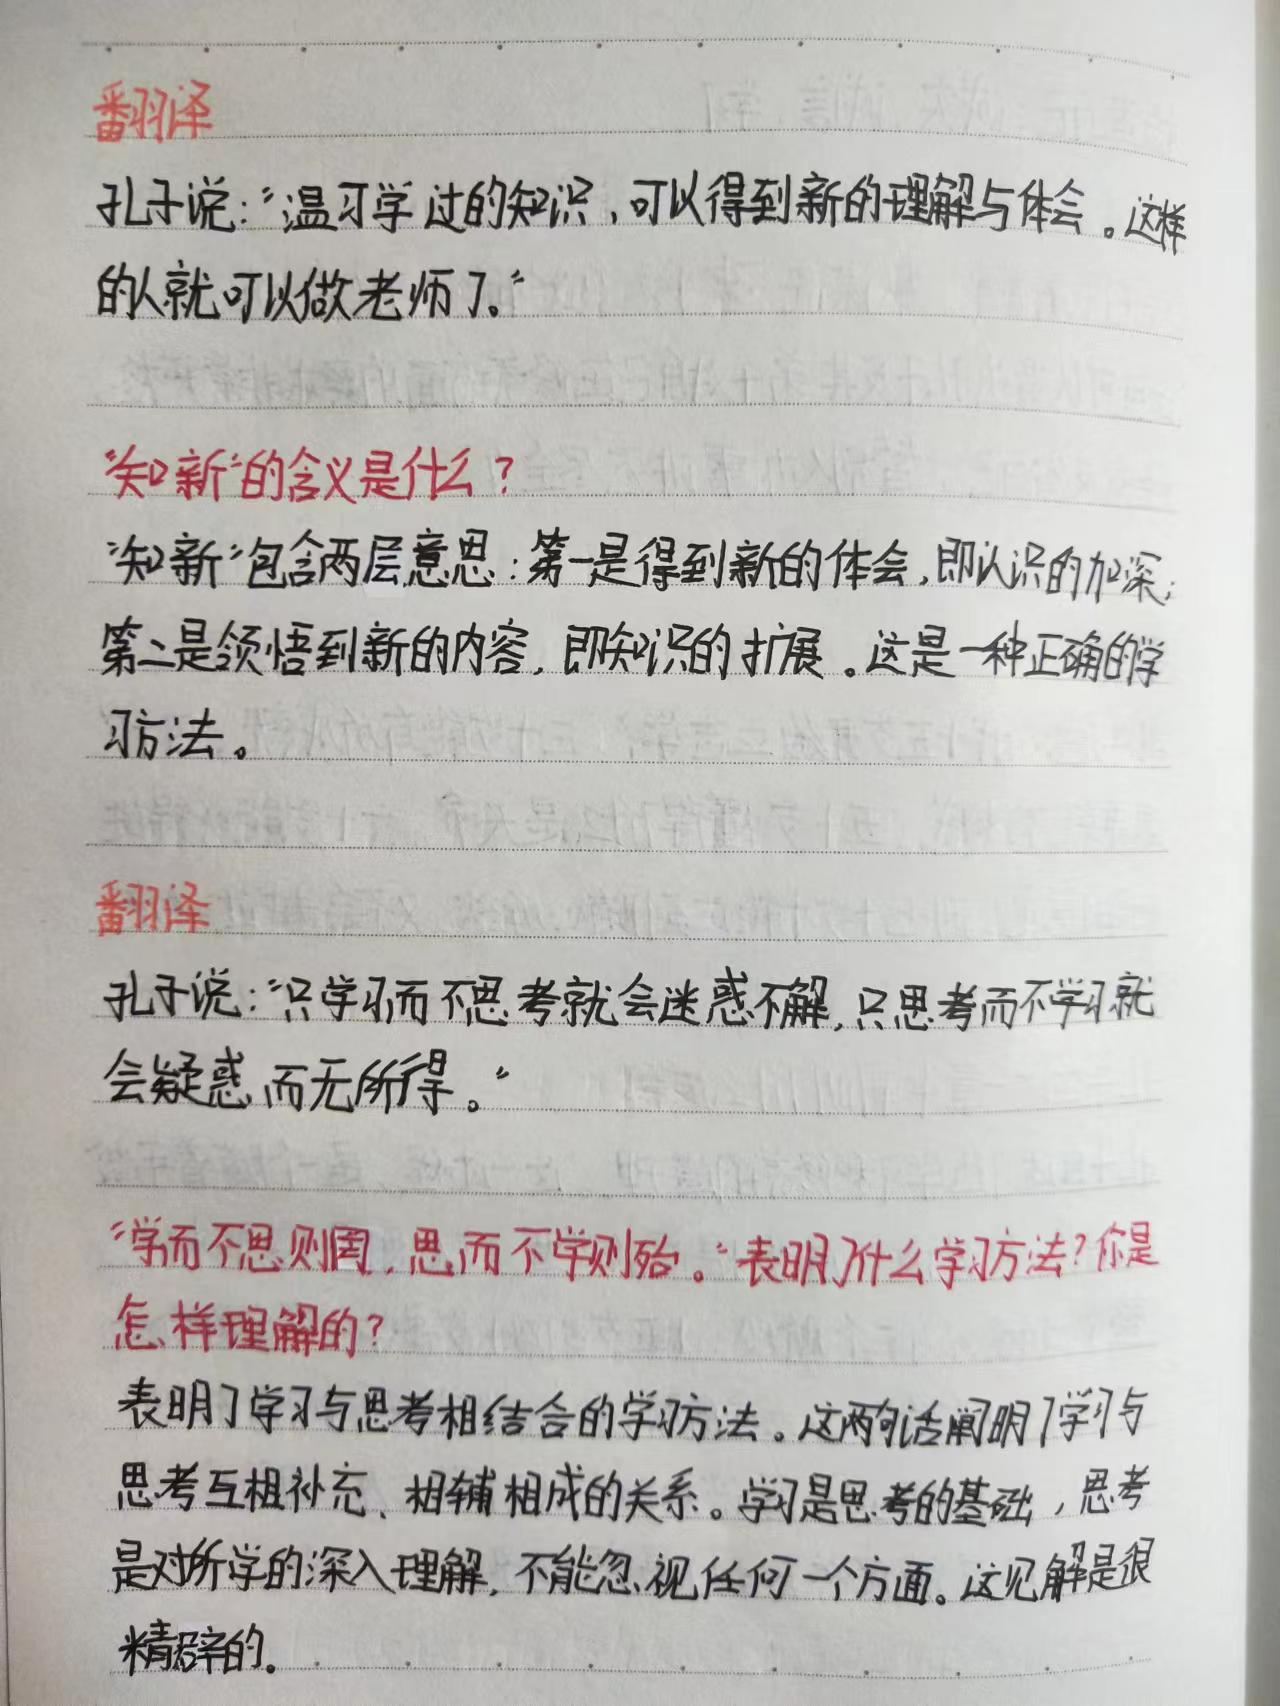 翻译
孔子说：“温习学过的知识，可以得到新的理解与体会。这样
的人就可以做老师了。”
“知新”的含义是什么？
“知新”包含两层意思：第一是得到新的体会，即认识的加深；
第二是领悟到新的内容，即知识的扩展。这是一种正确的学
习方法。
翻译
孔子说：“只学习而不思考就会迷惑不解，只思考而不学习就
会疑惑而无所得。”
“学而不思则罔，思而不学则殆。”表明了什么学习方法？你是
怎样理解的？
表明了学习与思考相结合的学习方法。这两句话阐明了学习与
思考互相补充、相辅相成的关系。学习是思考的基础，思考
是对所学的深入理解，不能忽视任何一个方面。这见解是很
精辟的。